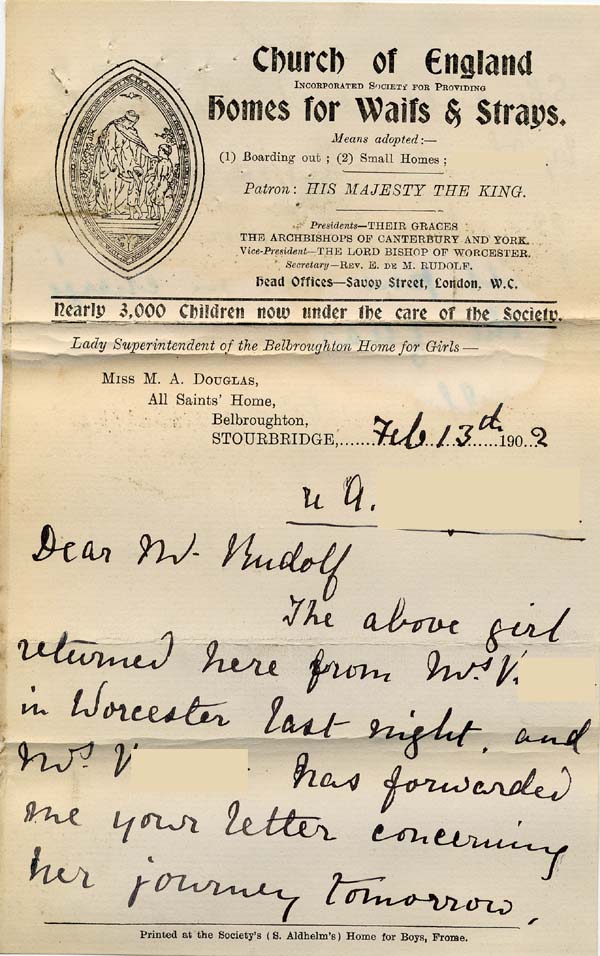 Church of England
Incorporated Society for Providing
Homes for Waifs & Strays.
Means adopted:—
(1) Boarding out; (2) Small Homes;
Patron: HIS MAJESTY THE KING.
Presidents—THEIR GRACES
THE ARCHBISHOPS OF CANTERBURY AND YORK.
Vice-President—THE LORD BISHOP OF WORCESTER.
Secretary—Rev. E. de M. RUDOLF.
Head Offices—Savoy Street, London, W.C.
Nearly 3,000 Children now under the care of the Society.
Lady Superintendent of the Belbroughton Home for Girls—
Miss M. A. Douglas,
All Saints' Home,
Belbroughton,
STOURBRIDGE,......Feb 13th......1902
re A.
Dear Mr Rudolf
The above girl
returned here from Mrs V.
in Worcester last night, and
Mrs V has forwarded
me your letter concerning
her journey tomorrow,
Printed at the Society's (S. Aldhelm's) Home for Boys, Frome.